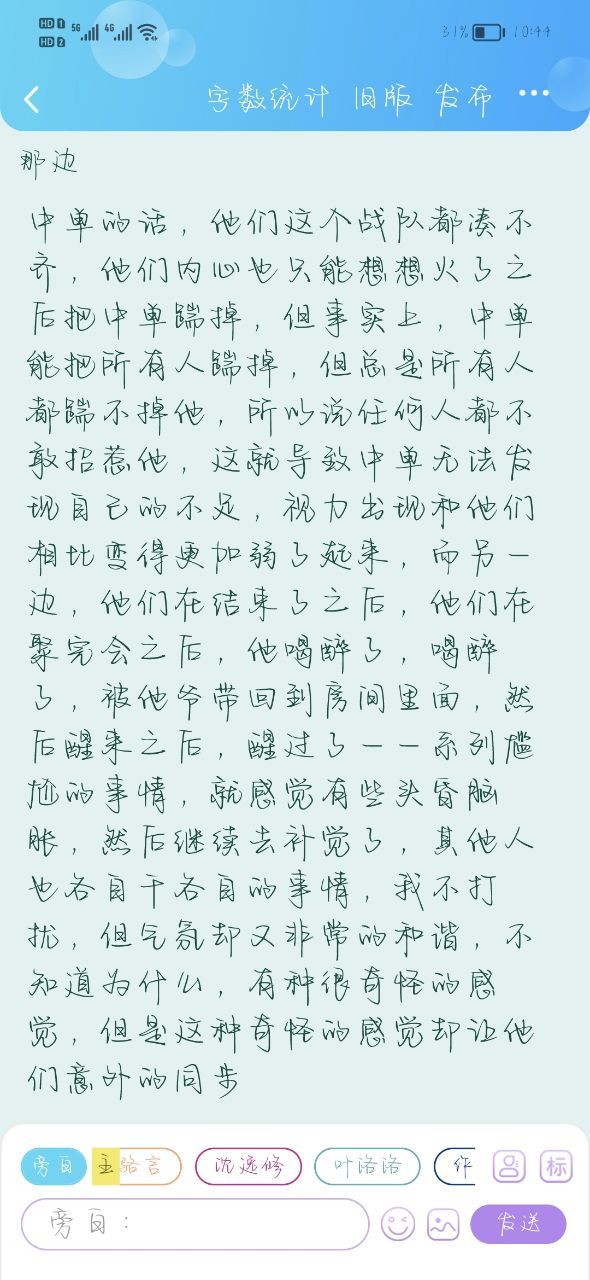 HD 1 5G 4G 31% 10:44
HD 2
字数统计 旧版 发布
那边
中单的话，他们这个战队都凑不
齐，他们内心也只能想想火了之
后把中单踹掉，但事实上，中单
能把所有人踹掉，但总是所有人
都踹不掉他，所以说任何人都不
敢招惹他，这就导致中单无法发
现自己的不足，视力出现和他们
相比变得更加弱了起来，而另一
边，他们在结束了之后，他们在
聚完会之后，他喝醉了，喝醉
了，被他爷带回到房间里面，然
后醒来之后，醒过了一一系列尴
尬的事情，就感觉有些头昏脑
胀，然后继续去补觉了，其他人
也各自干各自的事情，我不打
扰，但气氛却又非常的和谐，不
知道为什么，有种很奇怪的感
觉，但是这种奇怪的感觉却让他
们意外的同步
旁白 主 骆言 沈逸修 叶洛洛 作 标
旁白： 发送